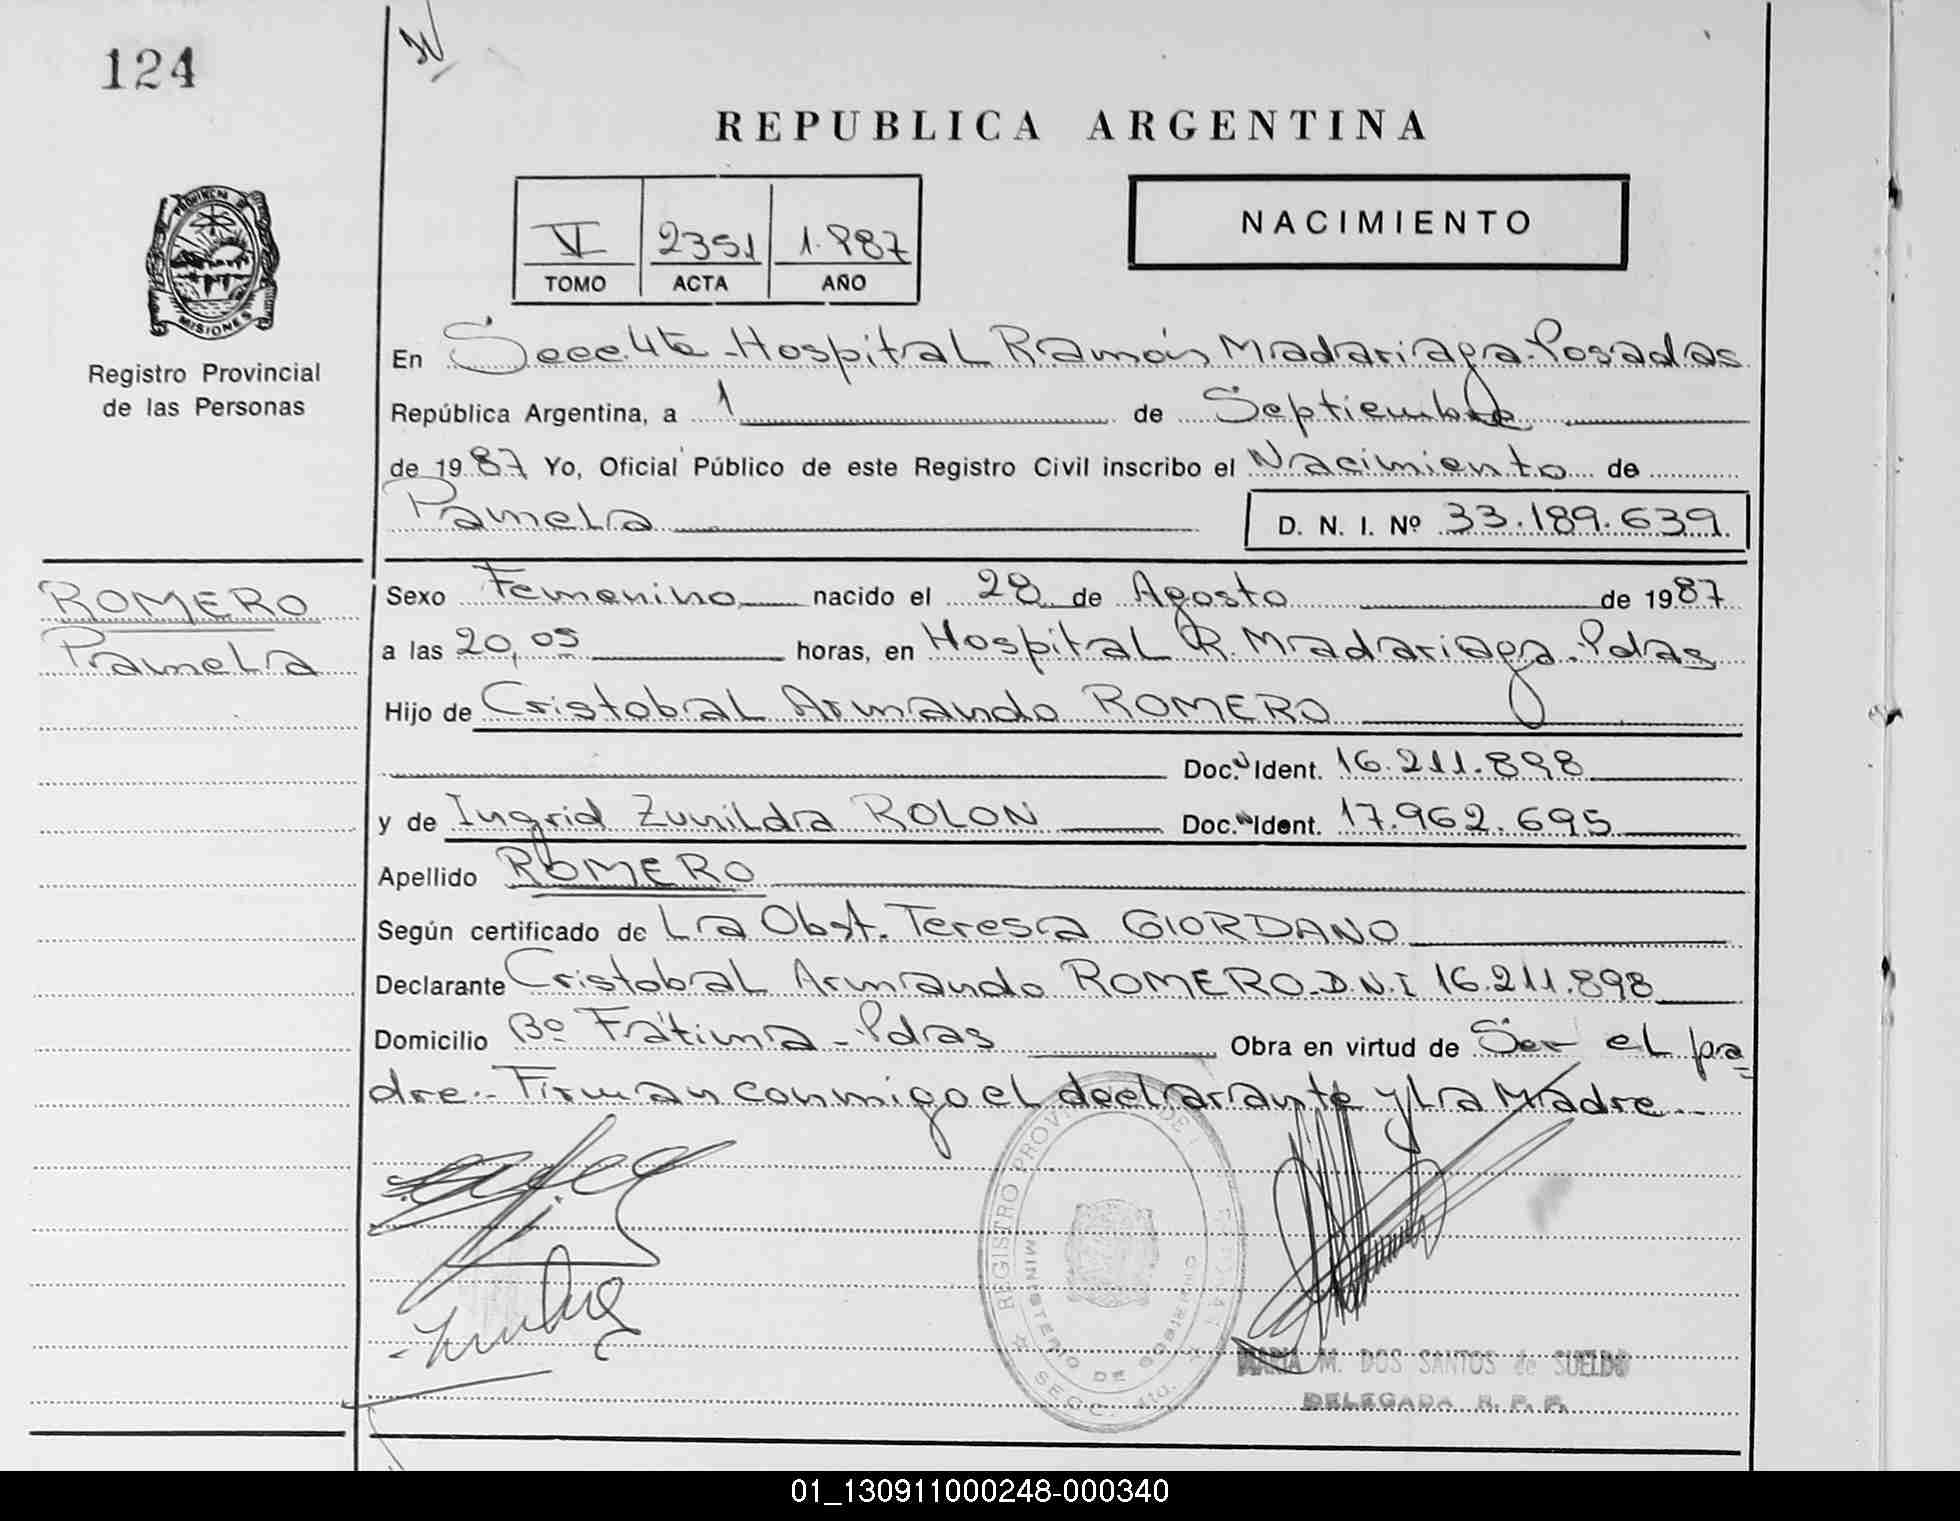 124
REPUBLICA ARGENTINA
VI 2351 1.987
TOMO ACTA AÑO
NACIMIENTO
PROVINCIA DE
MISIONES
Registro Provincial
de las Personas
En Secc. 4ta - Hospital Ramón Madariaga - Posadas
República Argentina, a 1 de Septiembre
de 1987 Yo, Oficial Público de este Registro Civil inscribo el Nacimiento de
Pamela D. N. I. Nº 33.189.639
ROMERO
Pamela
Sexo Femenino nacido el 28 de Agosto de 1987
a las 20,05 horas, en Hospital R. Madariaga - Pdas
Hijo de Cristobal Armando ROMERO
Doc. Ident. 16.211.898
y de Ingrid Zunilda ROLON Doc. Ident. 17.962.695
Apellido ROMERO
Según certificado de La Obst. Teresa GIORDANO
Declarante Cristobal Armando ROMERO - D.N.I 16.211.898
Domicilio Bº Fátima - Pdas Obra en virtud de Ser el pa=
dre.- Firman conmigo el declarante y La Madre.-
REGISTRO PROVINCIAL DE
MINISTERIO DE GOBIERNO
SECC. 4ta.
MARIA M. DOS SANTOS de SUELDO
DELEGADA R. P. P.
01_130911000248-000340